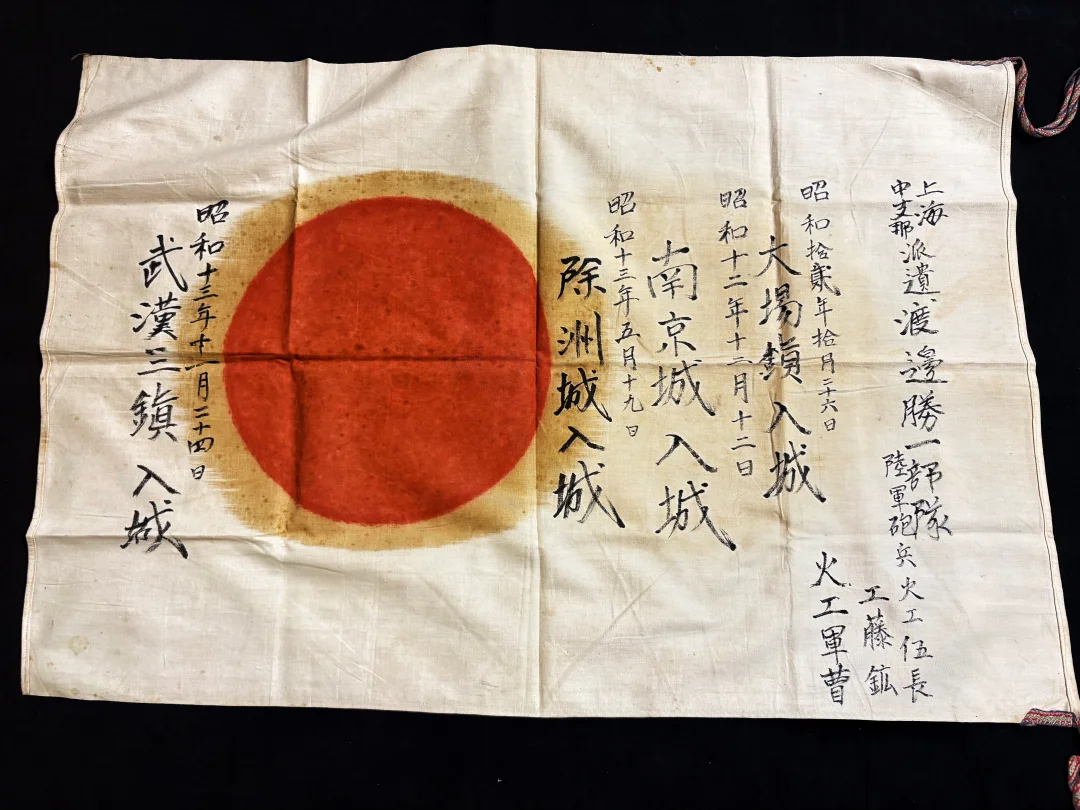 上海
中支那派遣渡邊勝一部隊
陸軍砲兵火工伍長
工藤鉱
火工軍曹
昭和拾貳年拾月二十六日
大場鎭入城
昭和十二年十二月十二日
南京城入城
昭和十三年五月十九日
除洲城入城
昭和十三年十一月二十四日
武漢三鎭入城